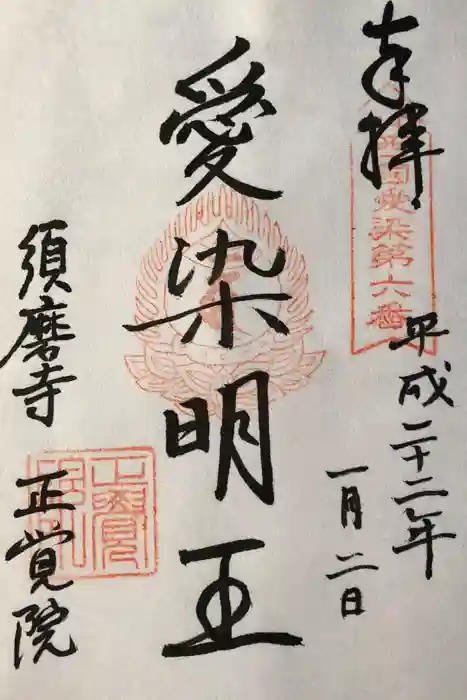 奉拝
西国愛染第六番
平成二十二年
一月二日
愛染明王
須磨寺 正覚院